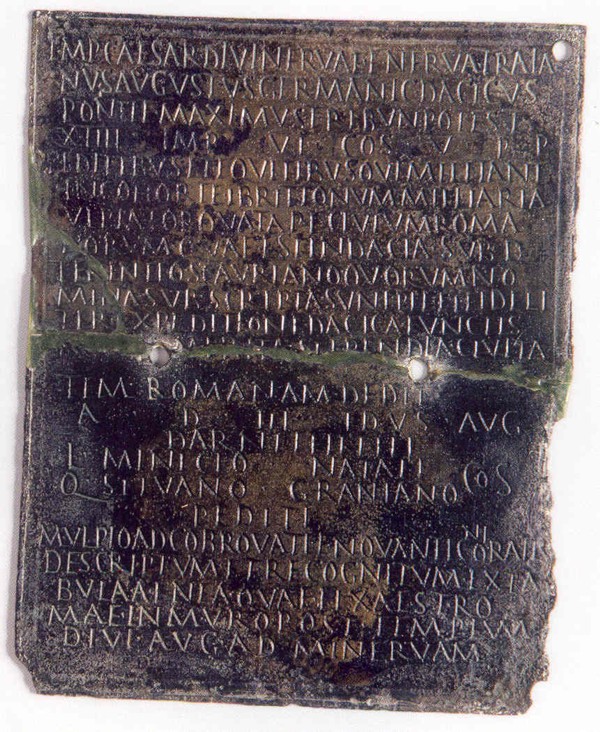 IMP CAESAR DIVI NERVAE F NERVA TRAIA
NVS AVGVSTVS GERMANIC DACICVS
PONTIF MAXIMVS TRIBVN POTEST
XIIII IMP VI COS V P P
PEDITIBVS ET EQVITIBVS QVI MILITANT
IN COHORTE I BRITTONVM MILLIARIA
VLPIA TORQVATA P F CIVIVM ROMA
NORVM QVAE EST IN DACIA SVB D
TERENTIO SCAVRIANO QVORVM NO
MINA SVBSCRIPTA SVNT PIE ET FIDELI
TER EXPEDITIONE DACICA FVNCTIS
STIPENDIA CIVITA
TEM ROMANAM DEDIT
A D III IDVS AVG
DARNITHITHI
L MINICIO NATALE
Q SILVANO GRANIANO COS
PEDITI
M VLPIO ADCOBROVATI F NOVANTICONI RATIS
DESCRIPTVM ET RECOGNITVM EX TA
BVLA AENEA QVAE FIXA EST RO
MAE IN MVRO POST TEMPLVM
DIVI AVG AD MINERVAM